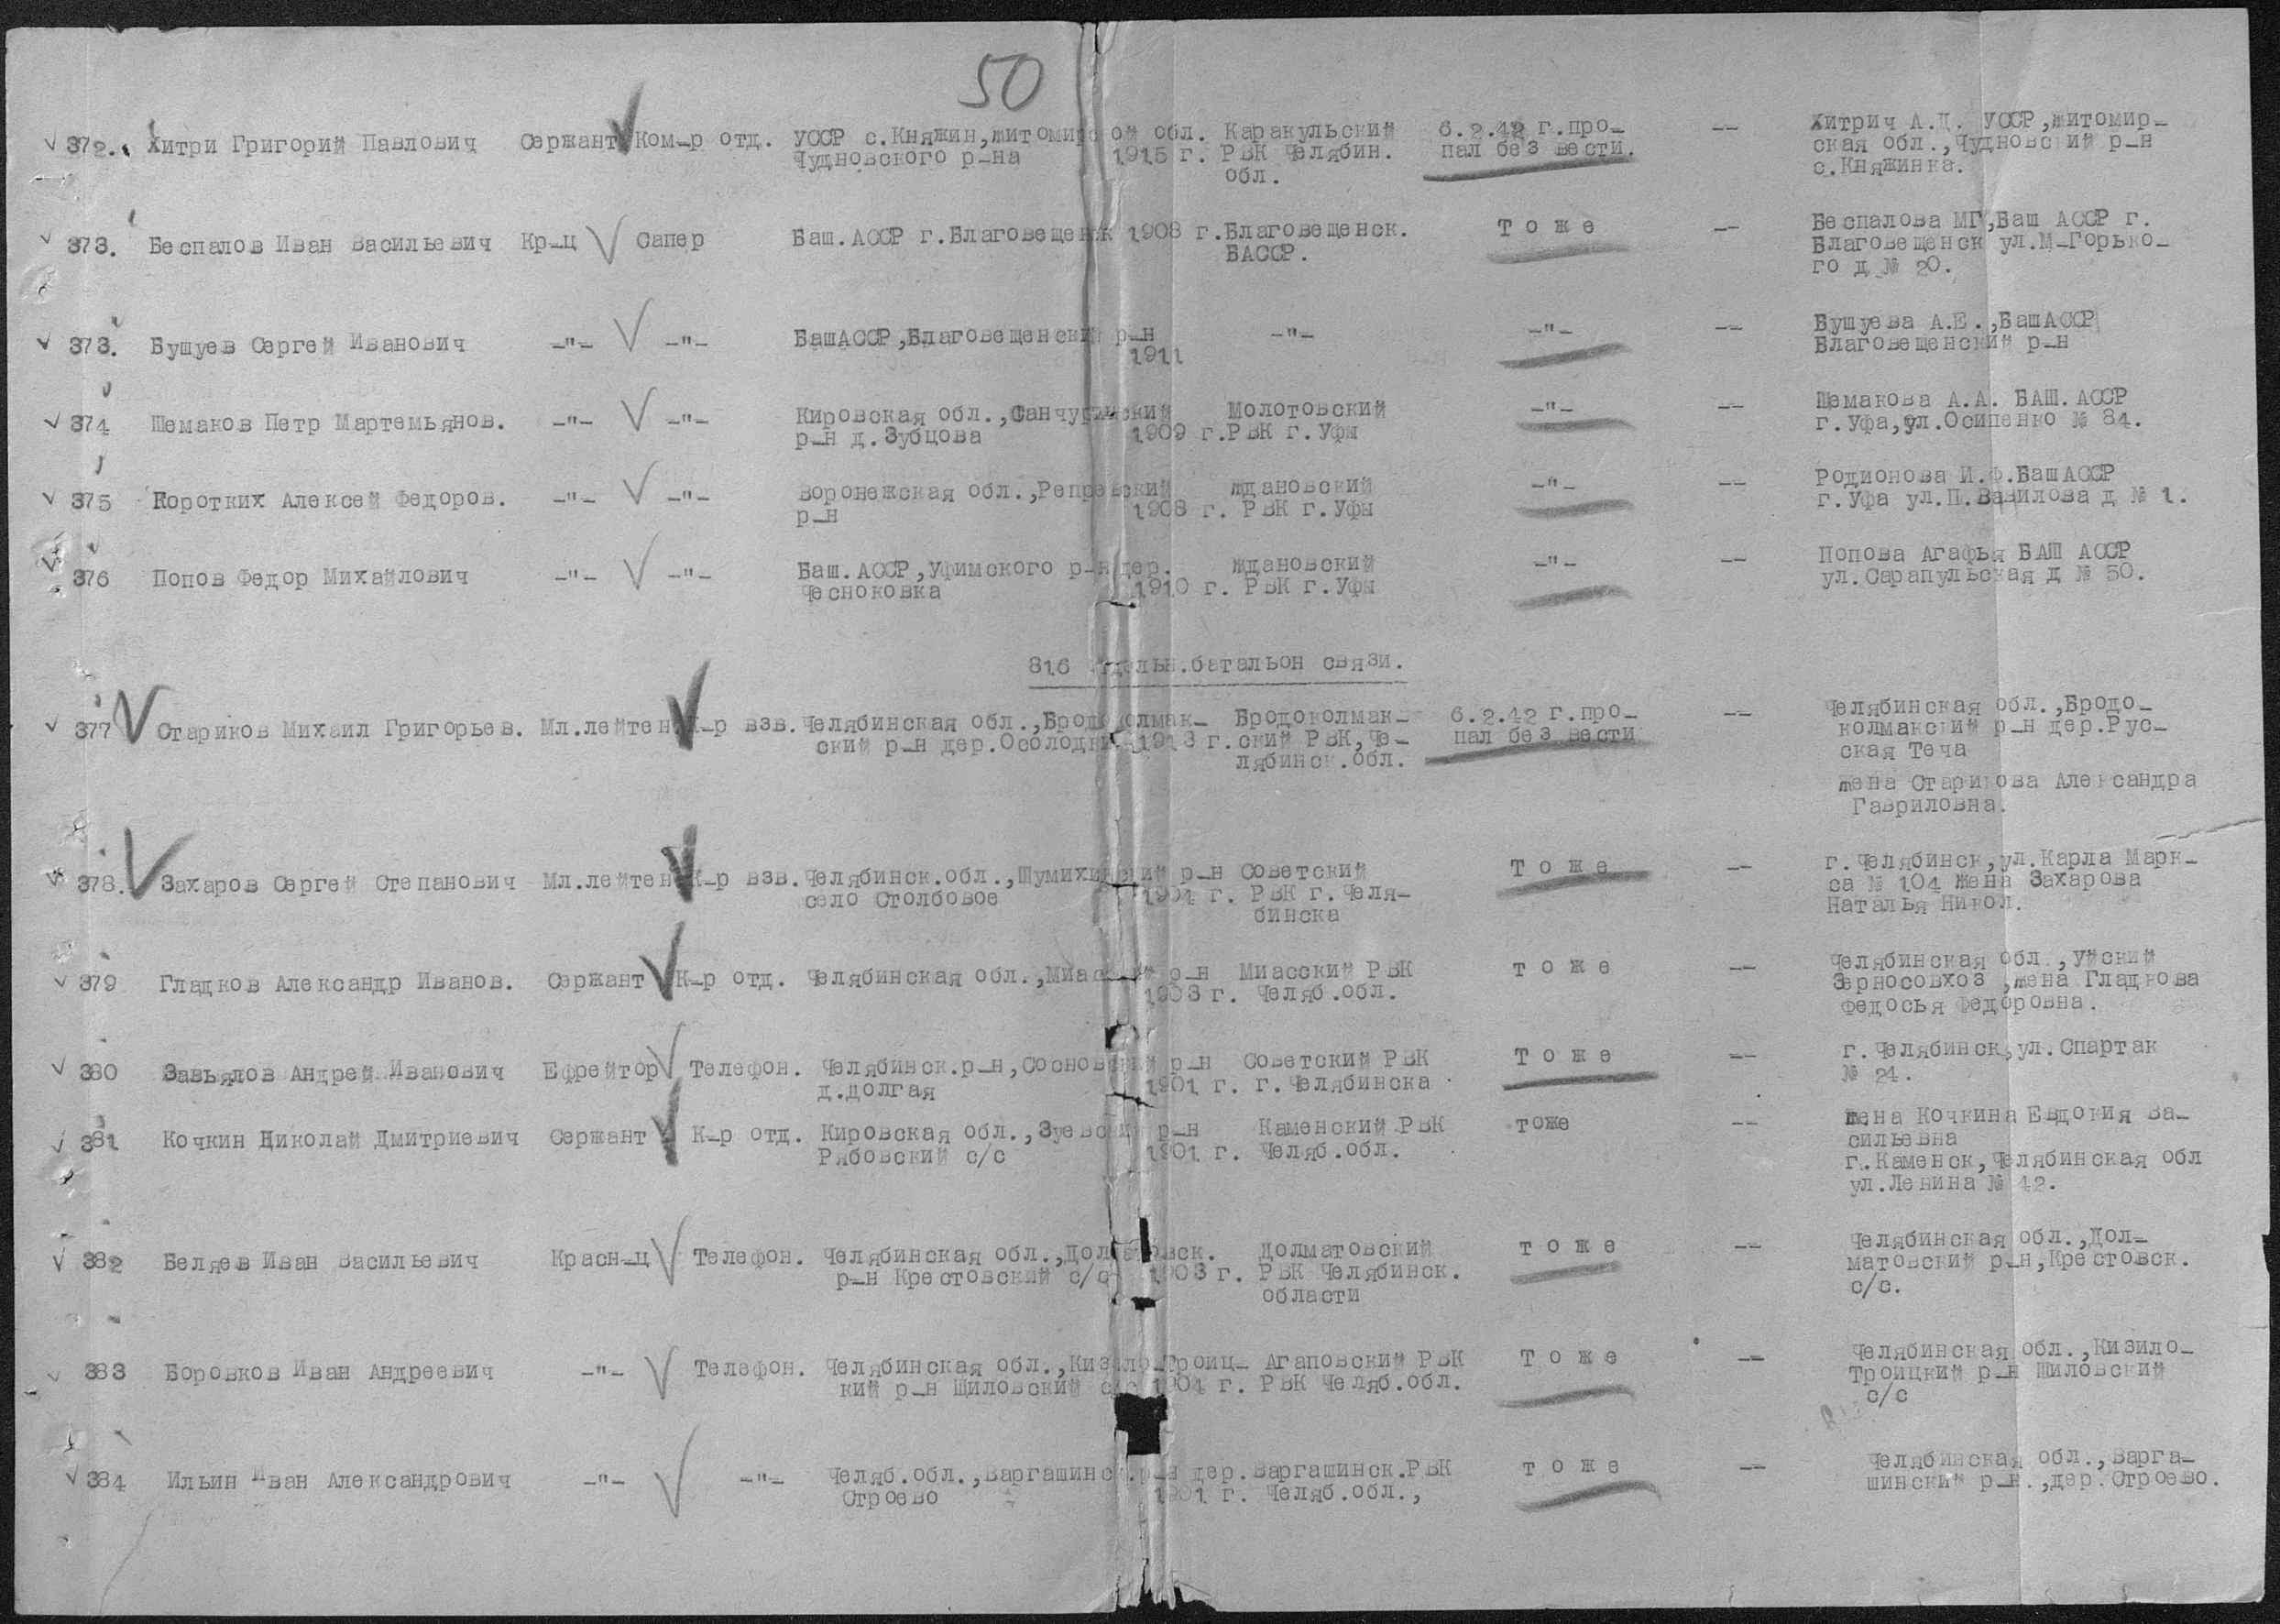 50
372. Хитри Григорий Павлович Сержант Ком-р отд. УССР с.Княжин,житомирской обл. Каракульский 6.2.42 г.про- -- Хитрич А.Д. УССР,житомир-
Чудновского р-на 1915 г. РВК Челябин. пал без вести. ская обл.,Чудновский р-н
обл. с.Княжинка.
373. Беспалов Иван Васильевич Кр-ц Сапер Баш.АССР г.Благовещенск 1908 г.Благовещенск. Тоже -- Беспалова МГ,Баш АССР г.
БАССР. Благовещенск ул.М-Горько-
го д № 20.
373. Бушуев Сергей Иванович -"- -"- БашАССР,Благовещенский р-н -"- -"- -- Бушуева А.Е.,БашАССР
1911 Благовещенский р-н
374 Шемаков Петр Мартемьянов. -"- -"- Кировская обл.,Санчурский Молотовский -"- -- Шемакова А.А. БАШ.АССР
р-н д.Зубцова 1909 г.РВК г.Уфы г.Уфа,ул.Осипенко № 84.
375 Коротких Алексей Федоров. -"- -"- Воронежская обл.,Репревский ждановский -"- -- Родионова И.Ф.БашАССР
р-н 1908 г. РВК г.Уфы г.Уфа ул.П.Вавилова д № 1.
376 Попов Федор Михайлович -"- -"- Баш.АССР,Уфимского р-н дер. ждановский -"- -- Попова Агафья БАШ АССР
Чесноковка 1910 г. РВК г.Уфы ул.Сарапульская д № 50.
816 отдельн.батальон связи.
377 Стариков Михаил Григорьев. Мл.лейтен К-р взв. Челябинская обл.,Бродоколмак- Бродоколмак- 6.2.42 г.про- -- Челябинская обл.,Бродо-
ский р-н дер. 1913 г.ский РВК,Че- пал без вести колмакский р-н дер.Рус-
лябинск.обл. ская Теча
жена Старикова Александра
Гавриловна.
378. Захаров Сергей Степанович Мл.лейтен К-р взв. Челябинск.обл.,Шумихинский р-н Советский Тоже -- г.Челябинск,ул.Карла Марк-
село Столбовое 1904 г. РВК г.Челя- са № 104 жена Захарова
бинска Наталья Никол.
379 Гладков Александр Иванов. Сержант К-р отд. Челябинская обл.,Миасский р-н Миасский РВК тоже -- Челябинская обл.,Уйский
1903 г. Челяб.обл. Зерносовхоз ,жена Гладкова
Федосья Федоровна.
380 Завьялов Андрей Иванович Ефрейтор Телефон. Челябинск.р-н,Сосновский р-н Советский РВК Тоже -- г.Челябинск,ул.Спартак
д.Долгая 1901 г. г.Челябинска № 24.
381 Кочкин Николай Дмитриевич Сержант К-р отд. Кировская обл.,Зуевский р-н Каменский РВК тоже -- жена Кочкина Евдокия Ва-
Рябовский с/с 1901 г. Челяб.обл. сильевна
г.Каменск,Челябинская обл
ул.Ленина № 42.
382 Беляев Иван Васильевич Красн-ц Телефон. Челябинская обл.,Долматовск. Долматовский тоже -- Челябинская обл.,Дол-
р-н Крестовский с/с 1903 г. РВК Челябинск. матовский р-н,Крестовск.
области с/с.
383 Боровков Иван Андреевич -"- Телефон. Челябинская обл.,Кизило-Троиц- Агаповский РВК Тоже -- Челябинская обл.,Кизило-
кий р-н Шиловский с/с 1904 г. РВК Челяб.обл. Троицкий р-н Шиловский
с/с
384 Ильин Иван Александрович -"- -"- Челяб.обл.,Варгашинск.р-н дер. Варгашинск.РВК тоже -- Челябинская обл.,Варга-
Строево 1901 г. Челяб.обл., шинский р-н.,дер.Строево.